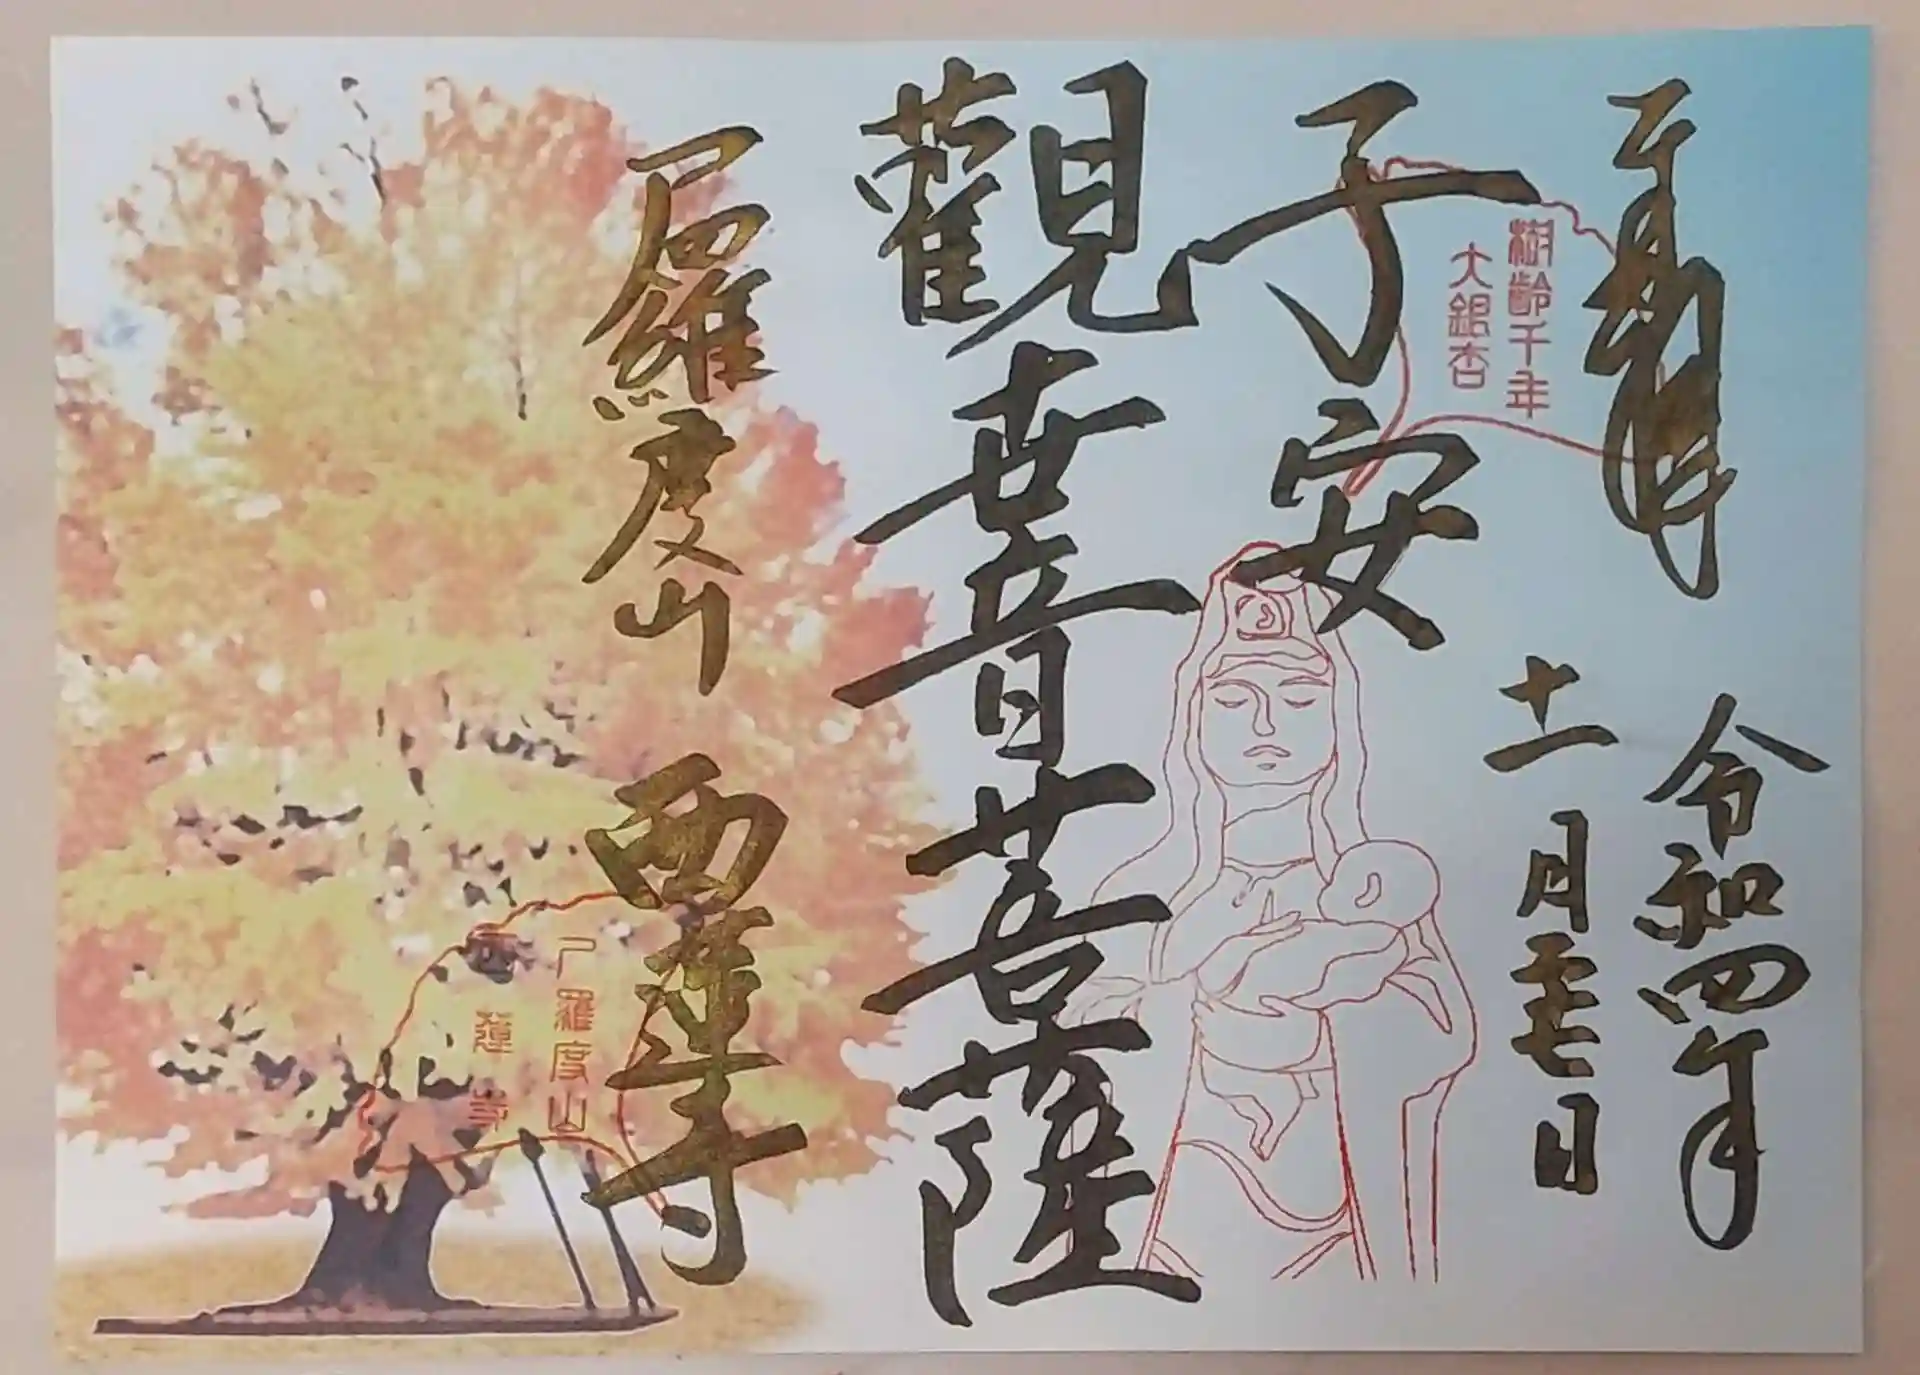 奉拝
令和四年
十一月二十七日
樹齢千年
大銀杏
子安
觀世音菩薩
尸羅度山
西蓮寺
尸羅度山
西蓮寺